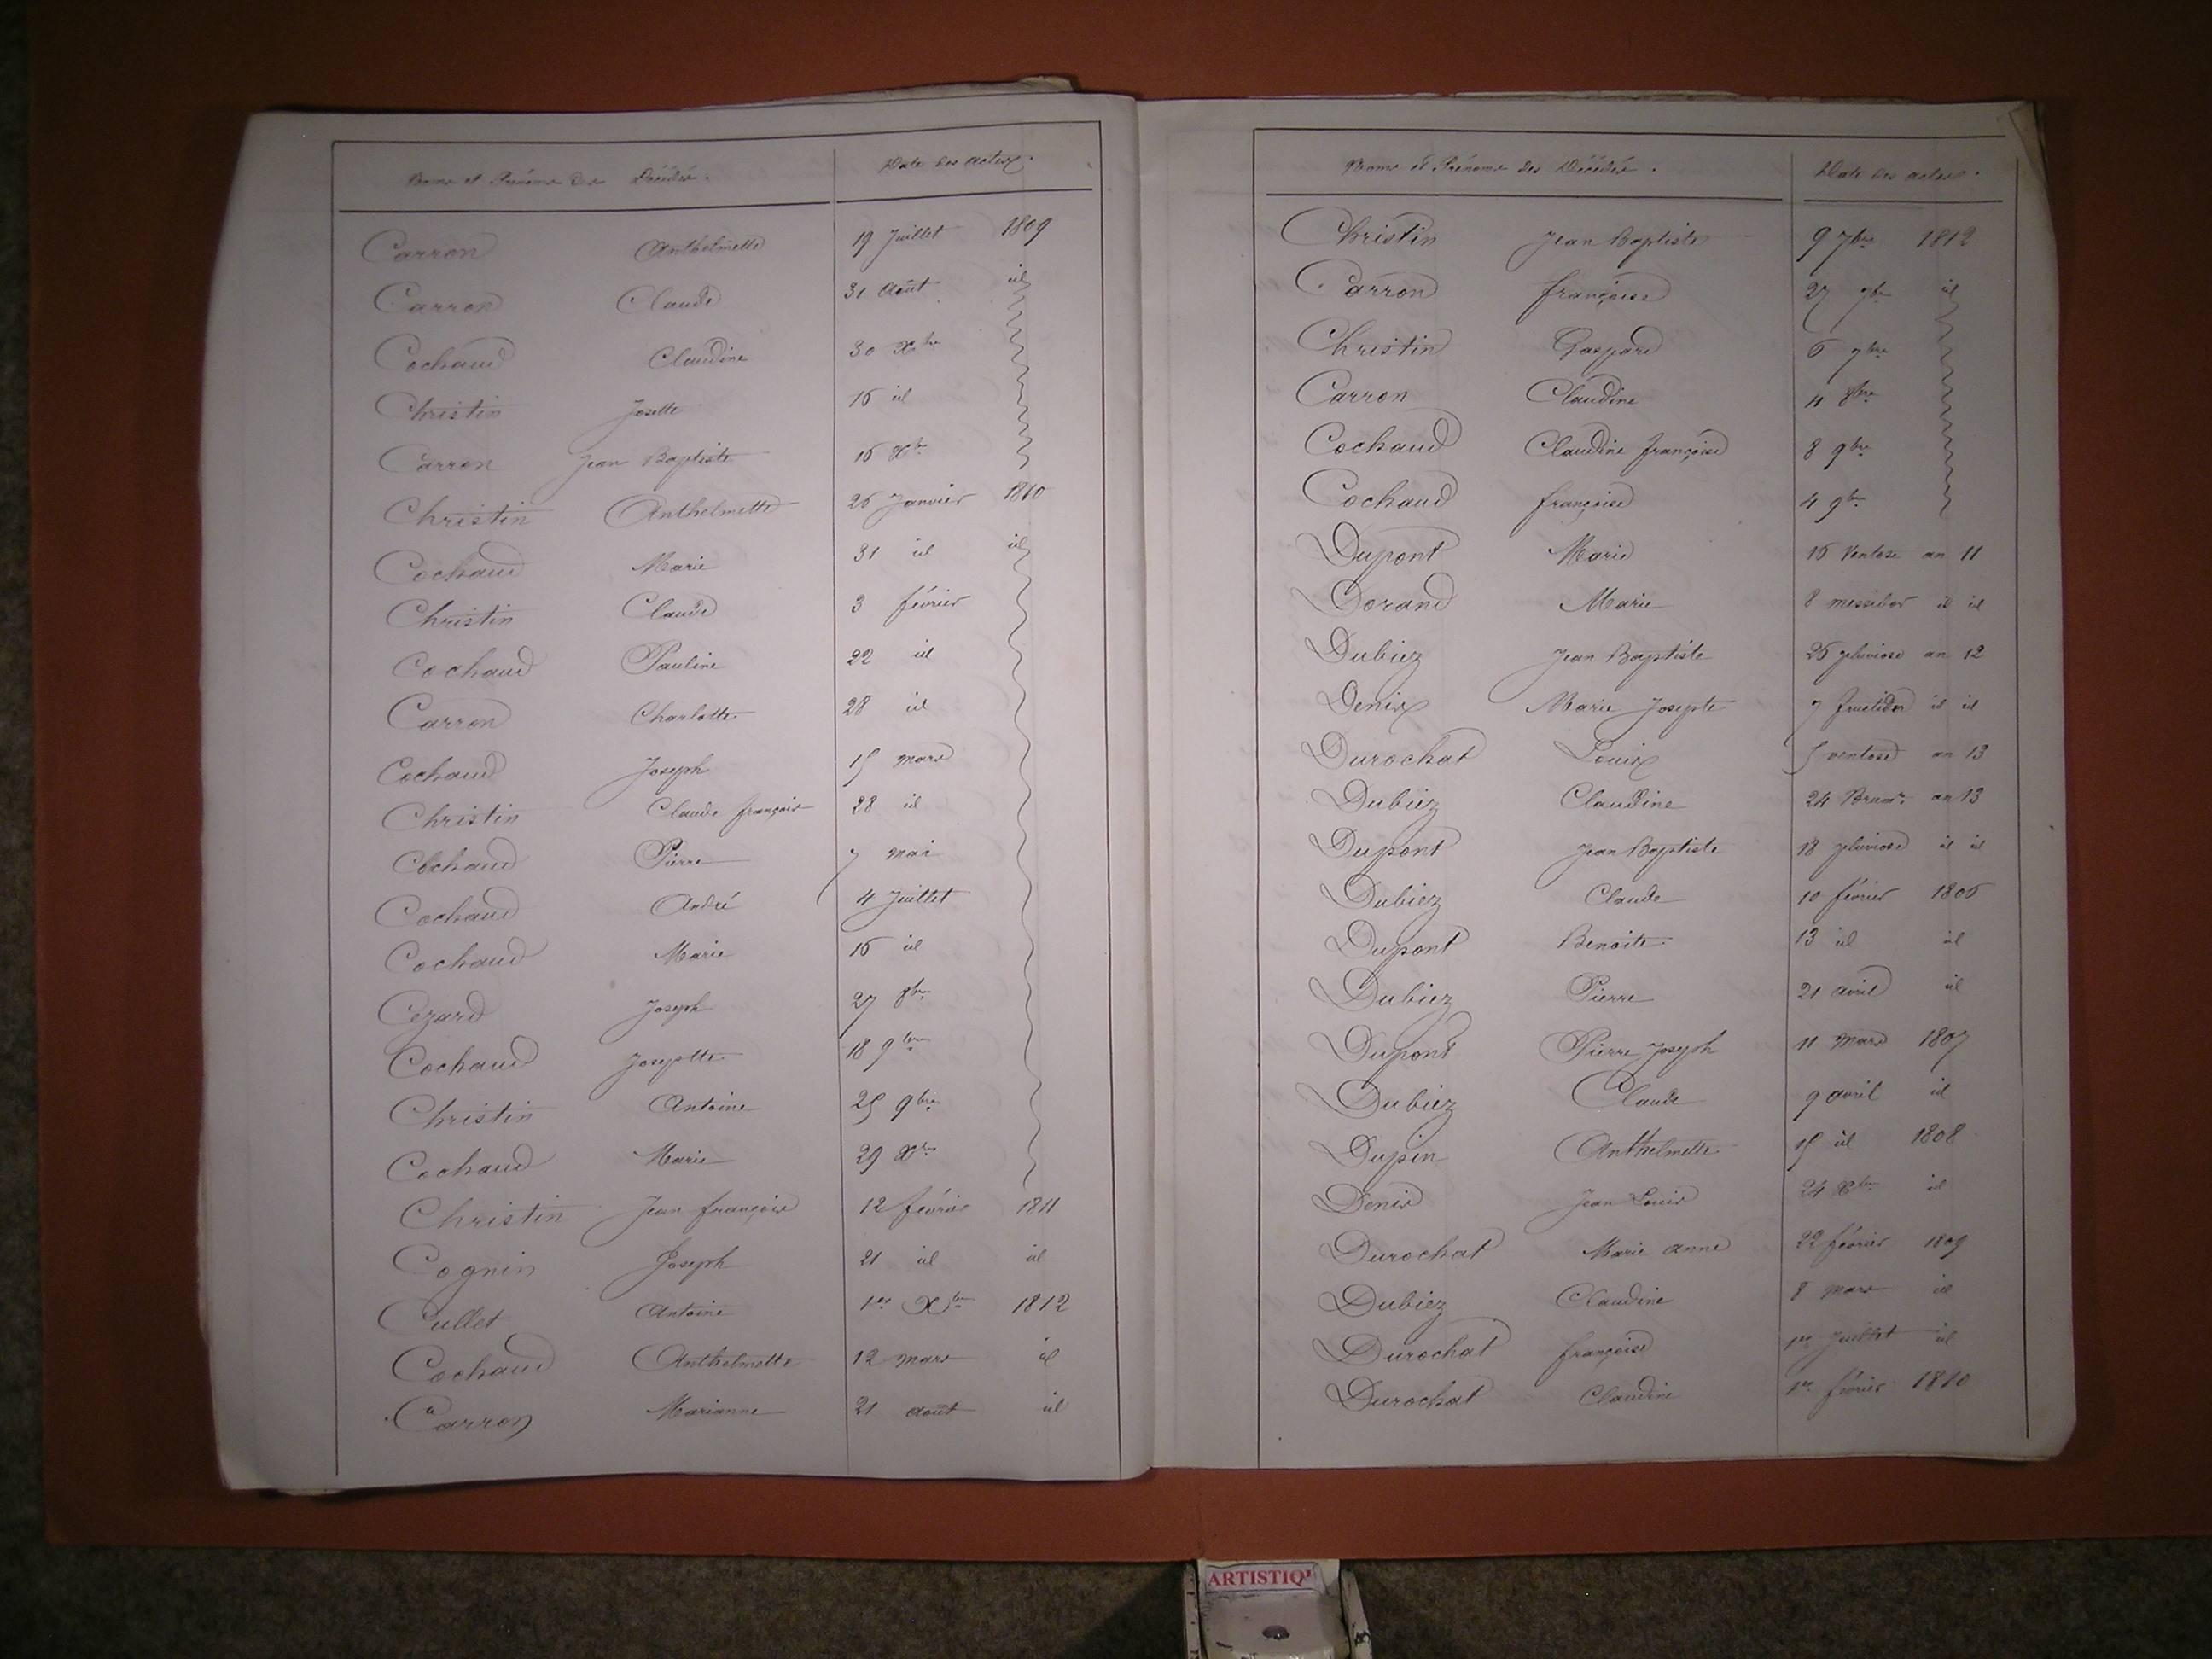 Noms et Prénoms des Décédés. Date des actes.
Carron Anthelmette 19 Juillet 1809
Carron Claude 31 Août id
Cochaud Claudine 30 Xbre
Christin Josette 16 id
Carron Jean Baptiste 16 Xbre
Christin Anthelmette 26 Janvier 1810
Cochaud Marie 31 id id
Christin Claude 3 février
Cochaud Pauline 22 id
Carron Charlotte 28 id
Cochaud Joseph 15 mars
Christin Claude françois 28 id
Cochaud Pierre 7 mai
Cochaud André 4 Juillet
Cochaud Marie 16 id
Cezard Joseph 27 8bre
Cochaud Josephte 18 9bre
Christin Antoine 25 9bre
Cochaud Marie 29 Xbre
Christin Jean françois 12 février 1811
Cognin Joseph 21 id id
Cullet Antoine 1er Xbre 1812
Cochaud Anthelmette 12 mars id
Carron Marianne 21 août id
Noms et Prénoms des Décédés. Date des actes.
Christin Jean Baptiste 9 7bre 1812
Carron françoise 27 7bre id
Christin Gaspard 6 7bre
Carron Claudine 4 8bre
Cochaud Claudine françoise 8 9bre
Cochaud françoise 4 9bre
Dupont Marie 16 Ventose an 11
Dorand Marie 8 messidor id id
Dubiez Jean Baptiste 26 pluviose an 12
Denis Marie Josephte 7 fructidor id id
Durochat Louis 5 ventose an 13
Dubiez Claudine 24 Brumre an 13
Dupont Jean Baptiste 18 pluviose id id
Dubiez Claude 10 février 1806
Dupont Benoite 13 id id
Dubiez Pierre 21 avril id
Dupont Pierre Joseph 11 Mars 1807
Dubiez Claude 9 avril id
Dupin Anthelmette 15 id 1808
Denis Jean Louis 24 Xbre id
Durochat Marie anne 22 février 1809
Dubiez Claudine 8 mars id
Durochat françoise 1er Juillet id
Durochat Claudine 1er février 1810
ARTISTIQ'